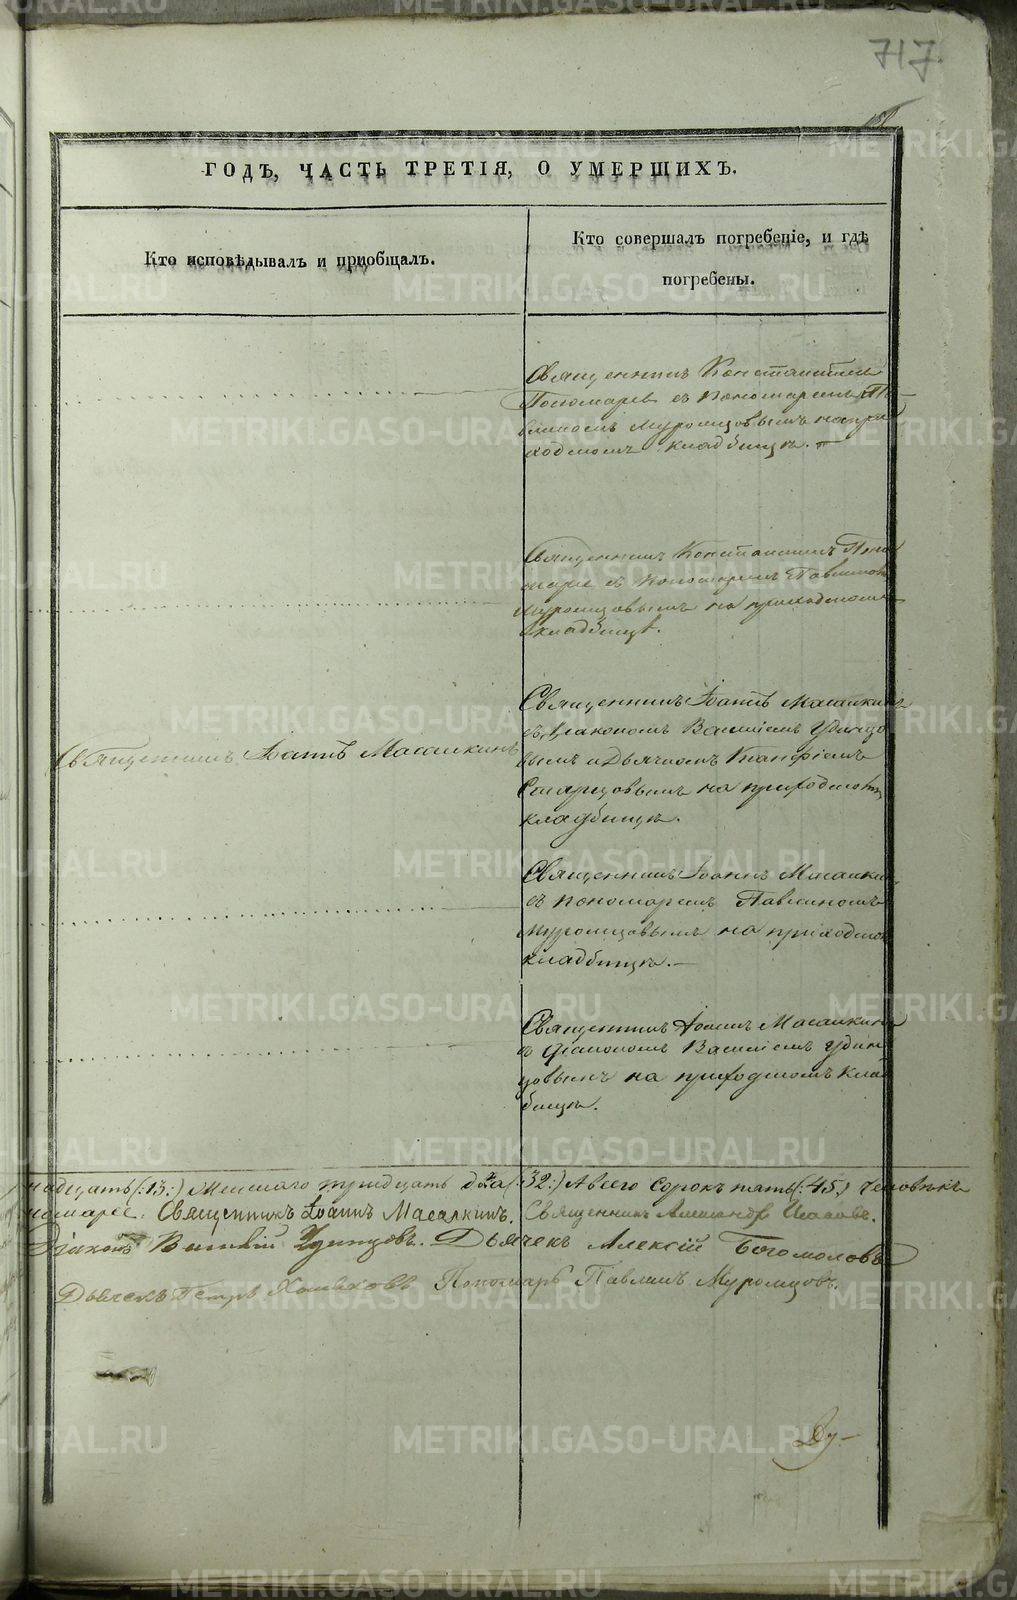 717
ГОДЪ, ЧАСТЬ ТРЕТІЯ, О УМЕРШИХЪ.
Кто исповѣдывалъ и пріобщалъ.
Кто совершалъ погребеніе, и гдѣ
погребены.
Священникъ Константинъ
Пономарев съ пономаремъ Па
влиномъ Муромцовымъ на при
ходскомъ кладбищѣ.
Священникъ Константинъ Поно
марев съ пономаремъ Павлином
Муромцовымъ на приходскомъ
кладбищѣ.
Священникъ Іоаннъ Масалкинъ
съ Діакономъ Василіемъ Удинцо
вымъ и Дьячкомъ
Старцовымъ на приходскомъ
кладбищѣ.
Священникъ Іоаннъ Масалкинъ
Священникъ Іоаннъ Масалкин
съ пономаремъ Павлиномъ
Муромцовымъ на приходском
кладбищѣ.
Священникъ Іоаннъ Масалкинъ
съ Діакономъ Василіемъ Удин
цовымъ на приходскомъ кла
бищѣ.
надцать (:13:) Женскаго тридцать два (:32:) А всего сорокъ пять (:45:) человѣкъ
Священникъ Іоаннъ Масалкинъ. Священникъ Александр
Діаконъ Василій Удинцовъ. Дьячекъ Алексій Богомоловъ
Дьячекъ Петръ Пономарь Павлинъ Муромцовъ.